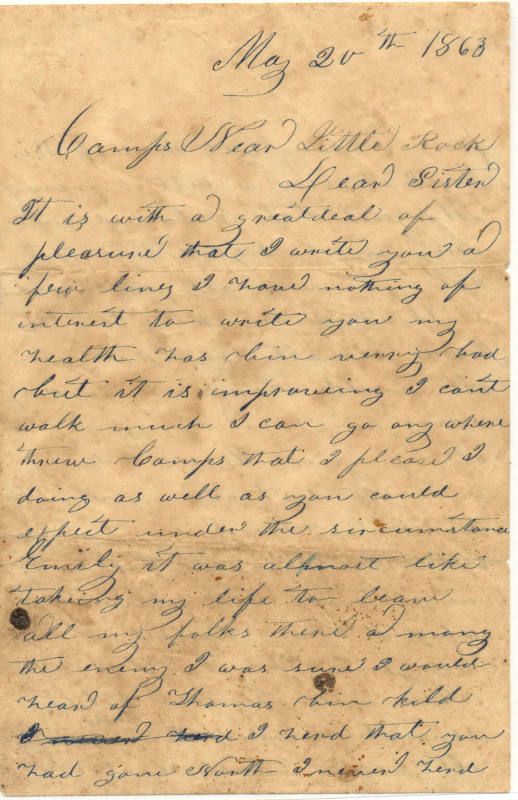 May 20th 1863
Camps Near Little Rock
Dear Sister
It is with a greatdeal of
pleasure that I write you a
few lines I have nothing of
interest to write you my
health has bin verry bad
but it is improveing I cant
walk much I can go any where
threw Camps that I please I
doing as well as you could
expect under the sircumstance
Emily it was allmost like
takeing my life to leave
all my folks there a mong
the enemy I was sure I would
hear of Thomas bin kild
I herd that you
had gone North I never herd